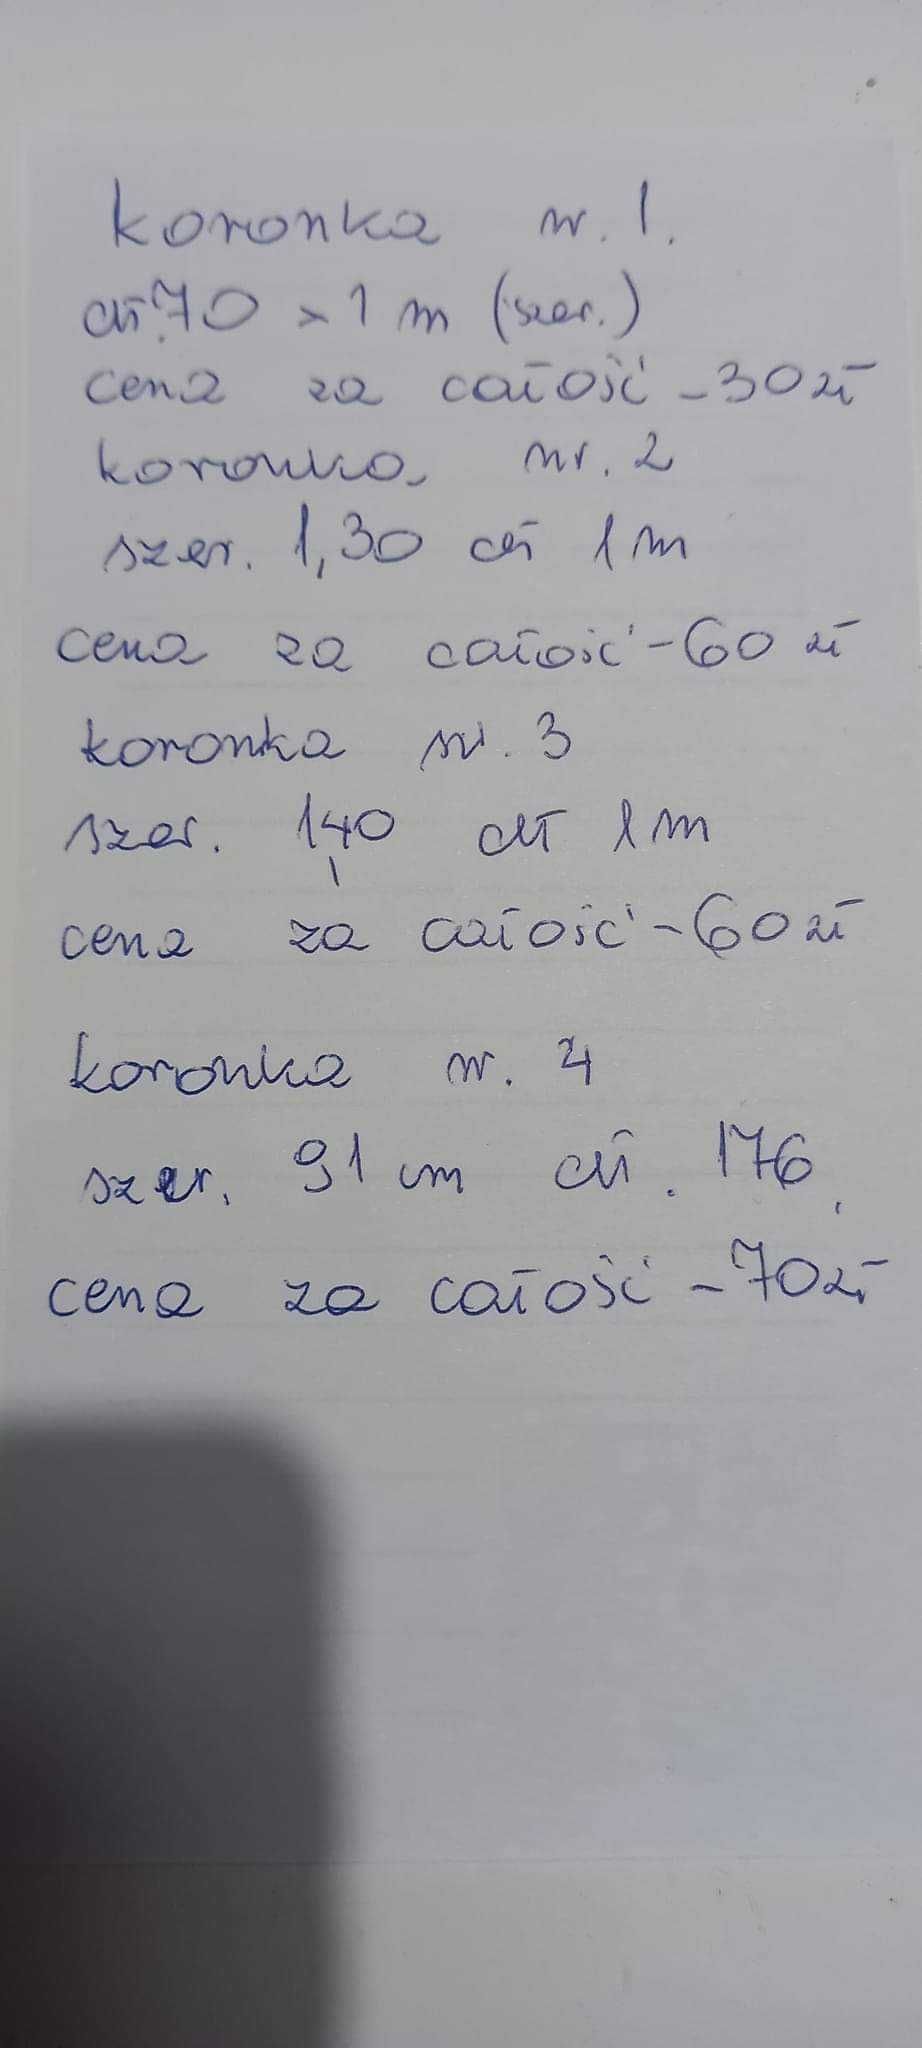 koronka nr. 1.
dł. 70 x 1 m (szer.)
cena za całość - 30 zł
koronka nr. 2
szer. 1,30 dł 1 m
cena za całość - 60 zł
koronka nr. 3
szer. 1,40 dł 1 m
cena za całość - 60 zł
koronka nr. 4
szer. 91 cm dł. 176.
cena za całość - 70 zł